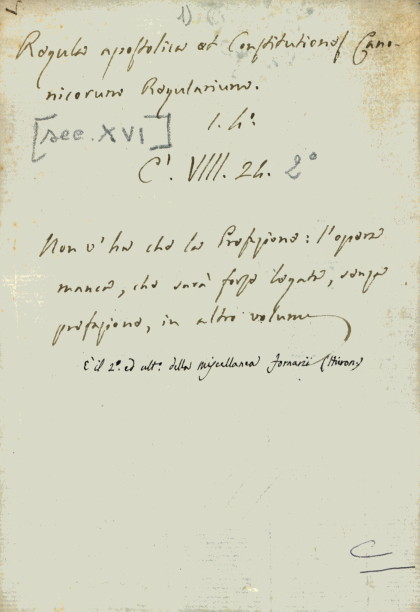 1)
Regula apostolica et Constitutiones Cano-
nicorum Regularium.
[sec. XVI]
C¹. VIII. 24. 2°
Non v'ha che la Prefazione: l'opera
manca, che sarà forse legata, senza
prefazione, in altro volume
È il 2°. ed ult°. della miscellanea Fornarii (Hieron.)
C